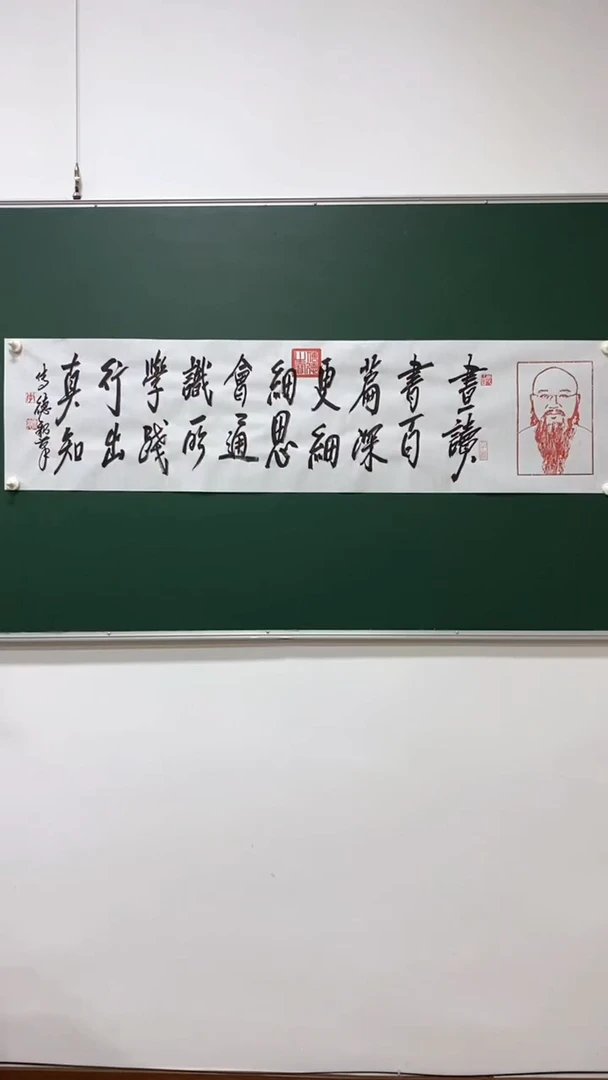 書讀
書百
篇深
更細
細思
會通
識所
學踐
行出
真知